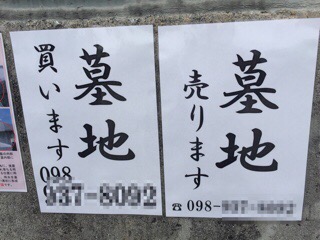 墓地
買います
098
937-8092
墓地
売ります
☎098-